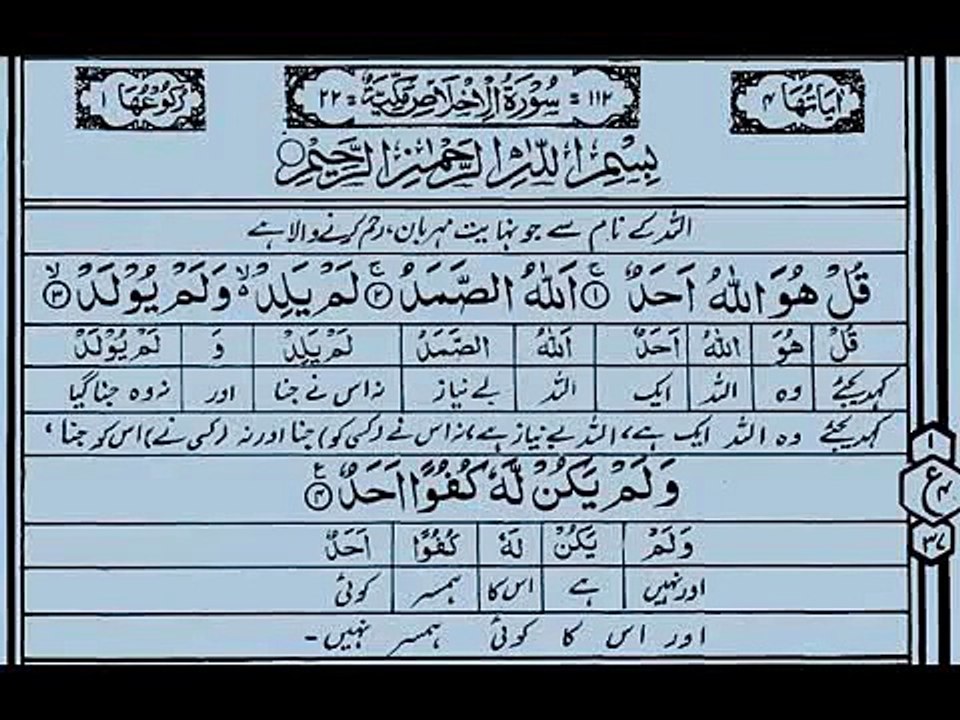 اٰيَاتُهَا ۴ ۱۱۲ = سُوْرَةُ الْاِخْلَاصِ مَكِّيَّةٌ = ۲۲ رُكُوْعُهَا ۱
بِسْمِ اللّٰهِ الرَّحْمٰنِ الرَّحِيْمِ
اللہ کے نام سے جو نہایت مہربان، رحم کرنے والا ہے
قُلْ هُوَ اللّٰهُ اَحَدٌ ۚ ۱ اَللّٰهُ الصَّمَدُ ۚ ۲ لَمْ يَلِدْ ۙ وَلَمْ يُوْلَدْ ۙ ۳
قُلْ هُوَ اللّٰهُ اَحَدٌ اَللّٰهُ الصَّمَدُ لَمْ يَلِدْ وَ لَمْ يُوْلَدْ
کہدیجئے وہ اللہ ایک اللہ بے نیاز نہ اس نے جنا اور نہ وہ جنا گیا
کہدیجئے وہ اللہ ایک ہے، اللہ بے نیاز ہے، نہ اس نے (کسی کو) جنا اور نہ (کسی نے) اس کو جنا،
وَلَمْ يَكُنْ لَّهٗ كُفُوًا اَحَدٌ ۴ ع
وَلَمْ يَكُنْ لَهٗ كُفُوًا اَحَدٌ
اور نہیں ہے اس کا ہمسر کوئی
اور اس کا کوئی ہمسر نہیں۔
۱
ع ۴
۳۷